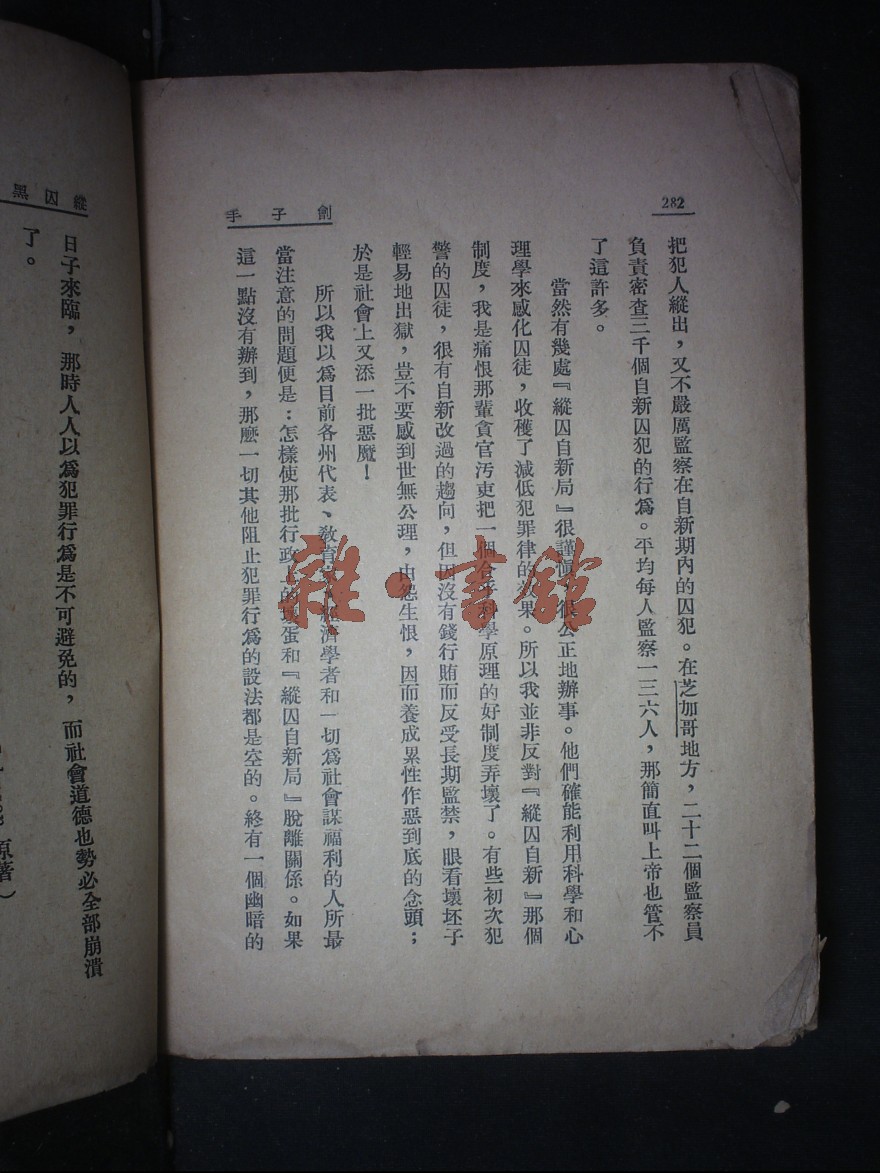 282
劊子手
把犯人縱出，又不嚴厲監察在自新期內的囚犯。在芝加哥地方，二十二個監察員
負責密查三千個自新囚犯的行爲。平均每人監察一三六人，那簡直叫上帝也管不
了這許多。
當然有幾處『縱囚自新局』很謹愼，很公正地辦事。他們確能利用科學和心
理學來感化囚徒，收穫了減低犯罪律的效果。所以我並非反對『縱囚自新』那個
制度，我是痛恨那輩貪官汚吏把一個合乎科學原理的好制度弄壞了。有些初次犯
警的囚徒，很有自新改過的趨向，但因沒有錢行賄而反受長期監禁，眼看壞坯子
輕易地出獄，豈不要感到世無公理，由怨生恨，因而養成累性作惡到底的念頭；
於是社會上又添一批惡魔！
所以我以爲目前各州代表、敎育家、經濟學者和一切爲社會謀福利的人所最
當注意的問題便是：怎樣使那批行政上的壞蛋和『縱囚自新局』脫離關係。如果
這一點沒有辦到，那麽一切其他阻止犯罪行爲的設法都是空的。終有一個幽暗的
縱囚黑
日子來臨，那時人人以爲犯罪行爲是不可避免的，而社會道德也勢必全部崩潰
了。
原著）
雜·書館